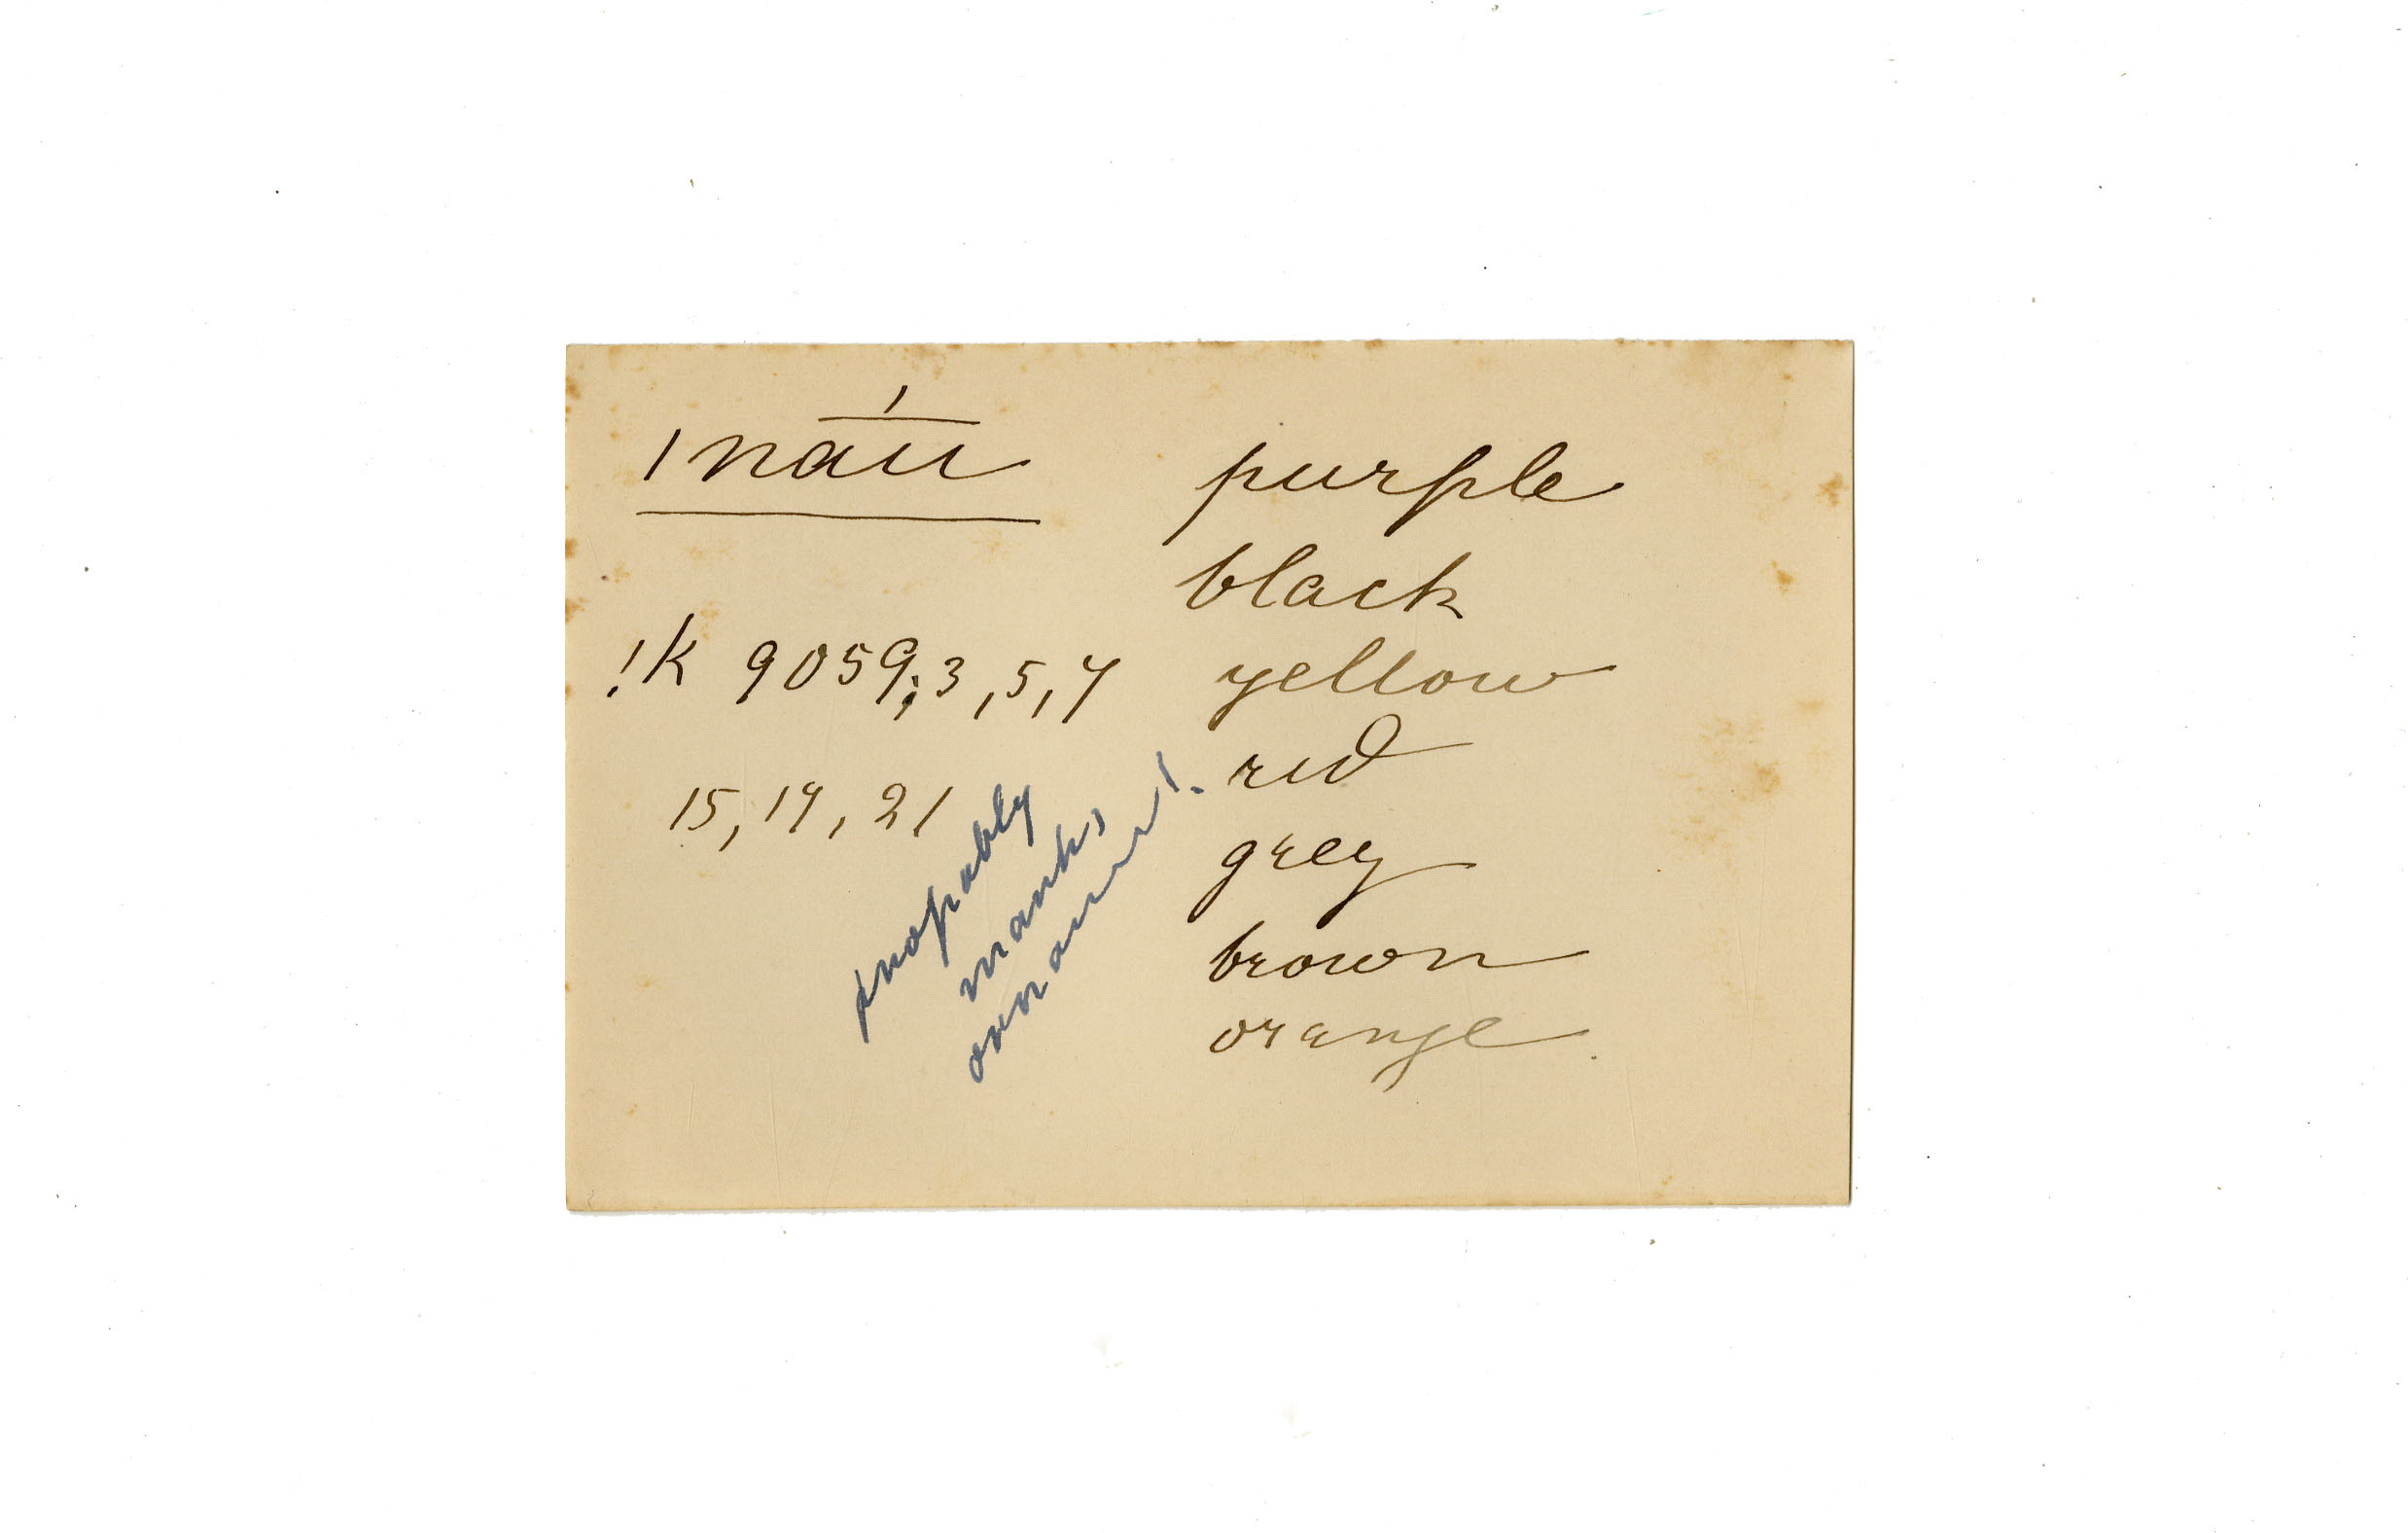 ǀnā́ū purple
black
!k 9059; 3, 5, 7 yellow
red
15, 17, 21
grey
brown
orange
probably
marks,